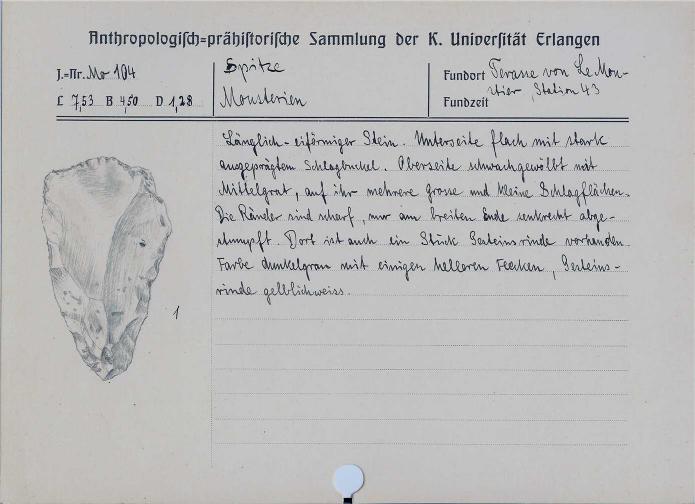 Anthropologisch=prähistorische Sammlung der K. Universität Erlangen
J.=Nr. Mo 104
L 7,53 B 4,50 D 1,28
Spitze
Mousterien
Fundort Terasse von Le Mou-
stier, Station 43
Fundzeit
Länglich-eiförmiger Stein. Unterseite flach mit stark
ausgeprägtem Schlagbuckel. Oberseite schwachgewölbt mit
Mittelgrat, auf ihr mehrere grosse und kleine Schlagflächen.
Die Ränder sind scharf, nur am breiten Ende senkrecht abge-
stumpft. Dort ist auch ein Stück Gesteinsrinde vorhanden.
Farbe dunkelgrau mit einigen helleren Flecken, Gesteins-
rinde gelblichweiss.
1